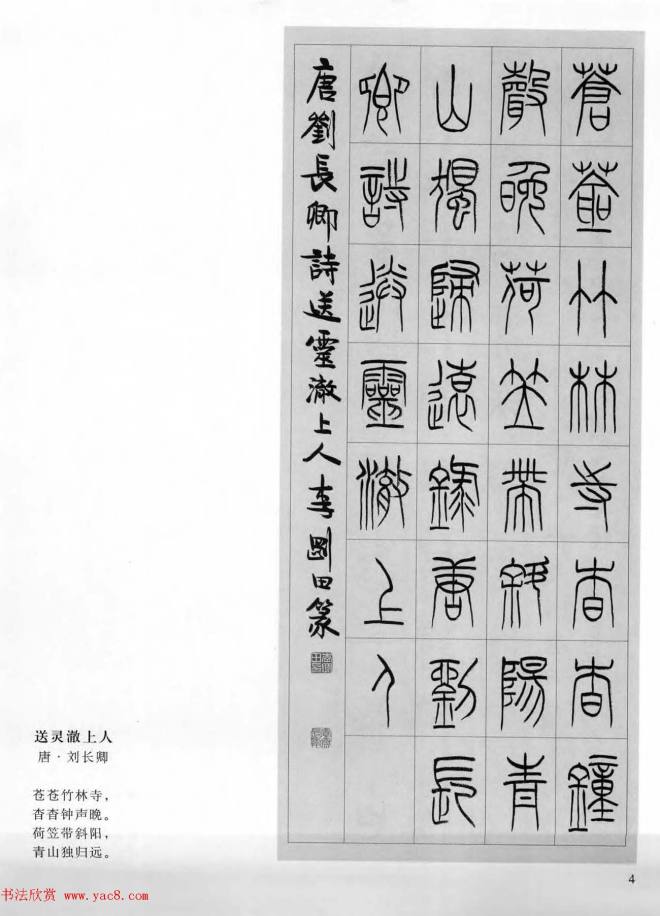 蒼蒼竹林寺杳杳鐘
聲晚荷笠帶斜陽青
山獨歸遠錄唐劉長
卿詩送靈澈上人
唐劉長卿詩送靈澈上人李剛田篆
送灵澈上人
唐·刘长卿
苍苍竹林寺，
杳杳钟声晚。
荷笠带斜阳，
青山独归远。
4
书法欣赏 www.yac8.com